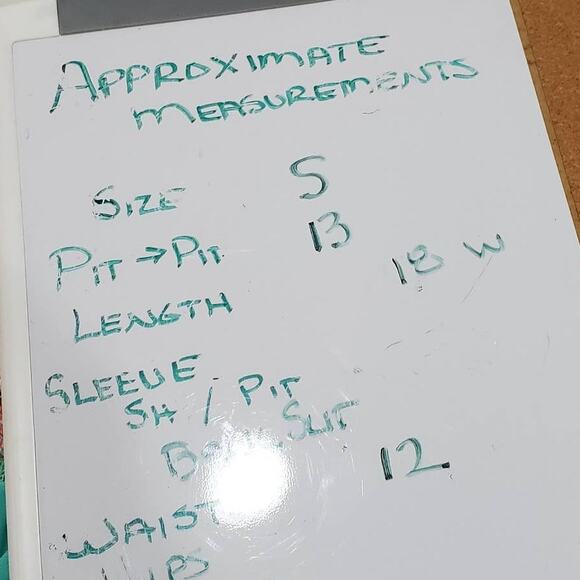 APPROXIMATE
MEASUREMENTS
SIZE S
PIT → PIT 13
LENGTH 18 W
SLEEVE
SH / PIT
SLIT
12
WAIST